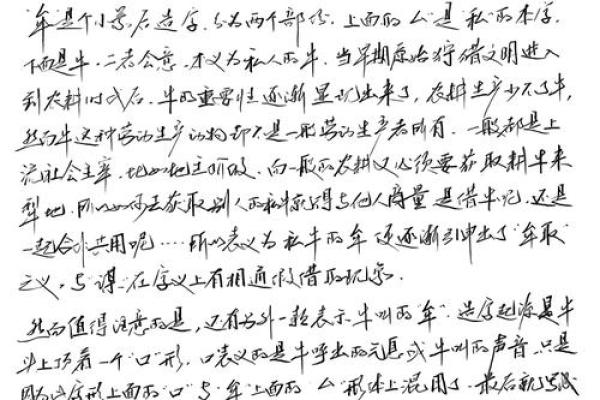 "牟"是个小篆后造字，分为两个部份，上面的厶"是"私"的本字，
下面是牛，二者会意，本义为私人的牛。当早期原始狩猎文明进入
到农耕时代后，牛的重要性逐渐显现出来了，农耕生产少不了牛，
然而牛这种劳动生产动物却不是一般劳动生产者所有，一般都是上
流社会主宰，比如地主阶级，而一般的农耕又必须要获取耕牛来
犁地，所以如何去获取别人的私牛就得与他人商量是借牛呢，还是
一起合计共用呢……所以表义为私牛的牟"还逐渐引申出了"牟取"
之义，与"谋"在字义上有相通假借的现象。
然而值得注意的是，还有另外一款表示牛叫的"牟"，造字起源是牛
头上顶着一个"口"形，口表义的是牛呼出的气息或牛叫的声音，只是
因为此字形上面的"口"与"牟"上面的"厶"形体上混用了，最后就写成